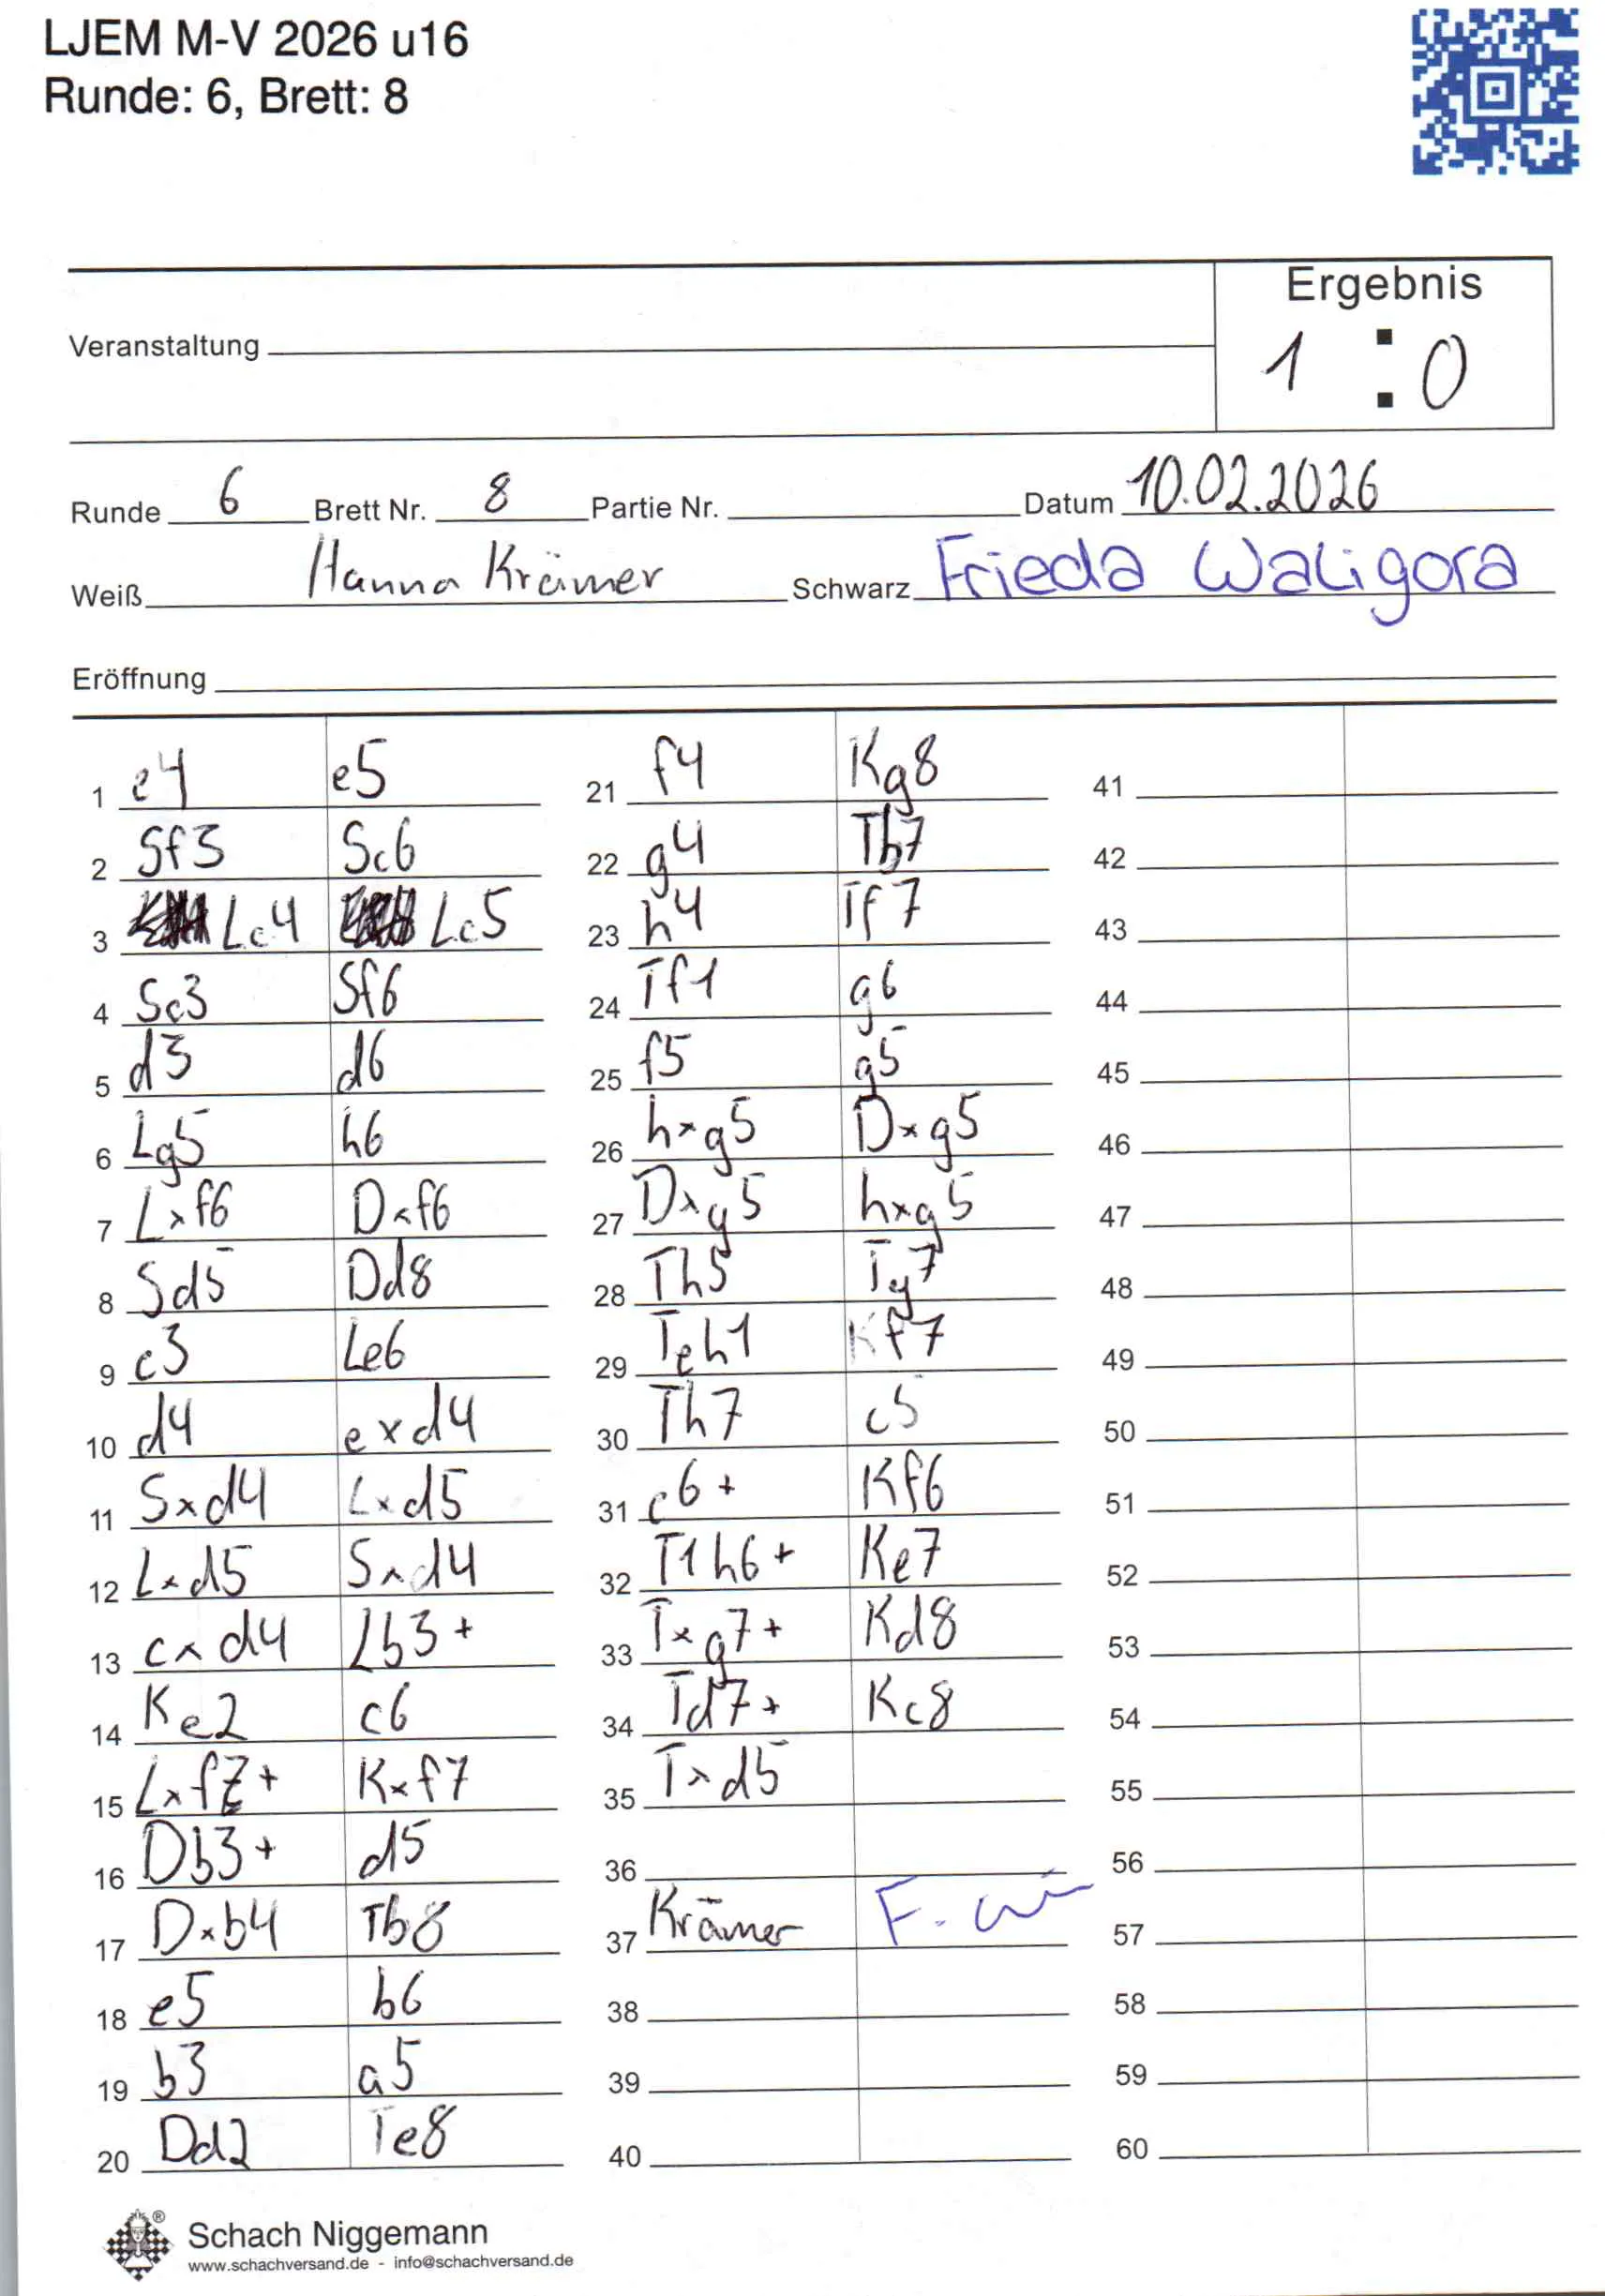 LJEM M-V 2026 u16
Runde: 6, Brett: 8
Ergebnis
Veranstaltung
1 : 0
Runde 6 Brett Nr. 8 Partie Nr. Datum 10.02.2026
Weiß Hanna Krämer Schwarz Frieda Waligora
Eröffnung
1 e4 e5
2 Sf3 Sc6
3 Lc4 Lc5
4 Sc3 Sf6
5 d3 d6
6 Lg5 h6
7 Lxf6 Dxf6
8 Sd5 Dd8
9 c3 Le6
10 d4 exd4
11 Sxd4 Lxd5
12 Lxd5 Sxd4
13 cxd4 Lb3+
14 Ke2 c6
15 Lxf7+ Kxf7
16 Db3+ d5
17 Dxb4 Tb8
18 e5 b6
19 b3 a5
20 Dd2 Te8
21 f4 Kg8
22 g4 Tb7
23 h4 Tf7
24 Tf1 g6
25 f5 g5
26 hxg5 Dxg5
27 Dxg5 hxg5
28 Th5 Tg7
29 Teh1 Kf7
30 Th7 c5
31 e6+ Kf6
32 T1h6+ Ke7
33 Txg7+ Kd8
34 Td7+ Kc8
35 Txd5
36
37 Krämer
38
39
40
41
42
43
44
45
46
47
48
49
50
51
52
53
54
55
56
57
58
59
60
Schach Niggemann
www.schachversand.de - info@schachversand.de